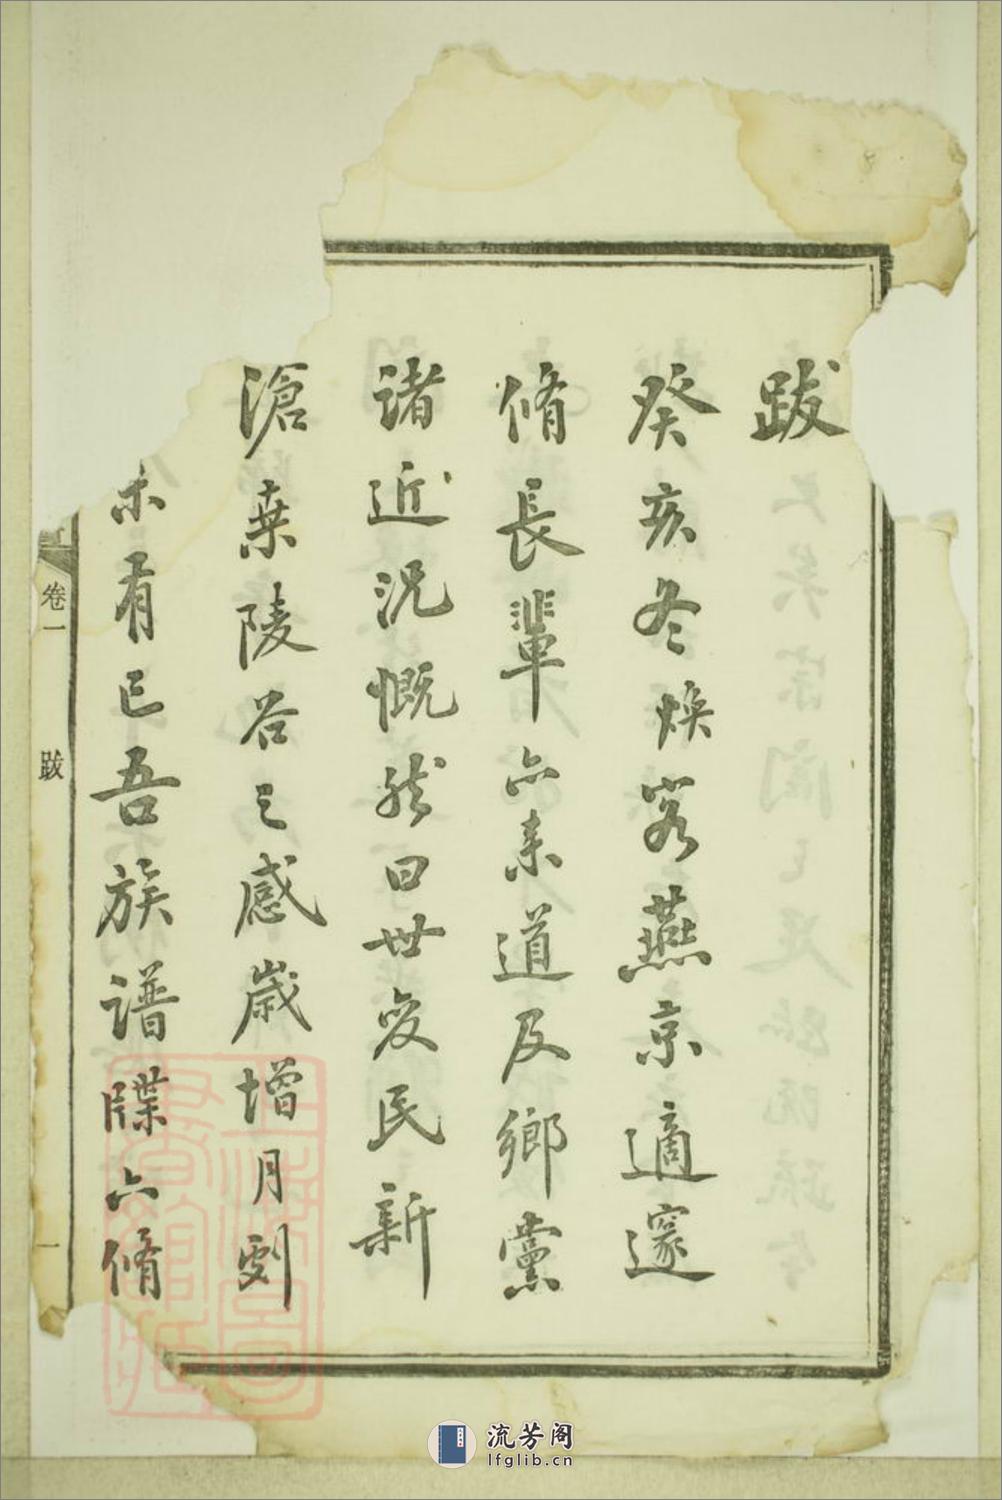 跋
癸亥冬煥客燕京適邃
脩長輩亦来道及鄉黨
諸近況慨然曰世变民新
滄桒陵谷之感歲增月劇
未有已吾族譜牒六脩
卷一
跋
一
上海圖書館藏
流芳阁
lfglib.cn